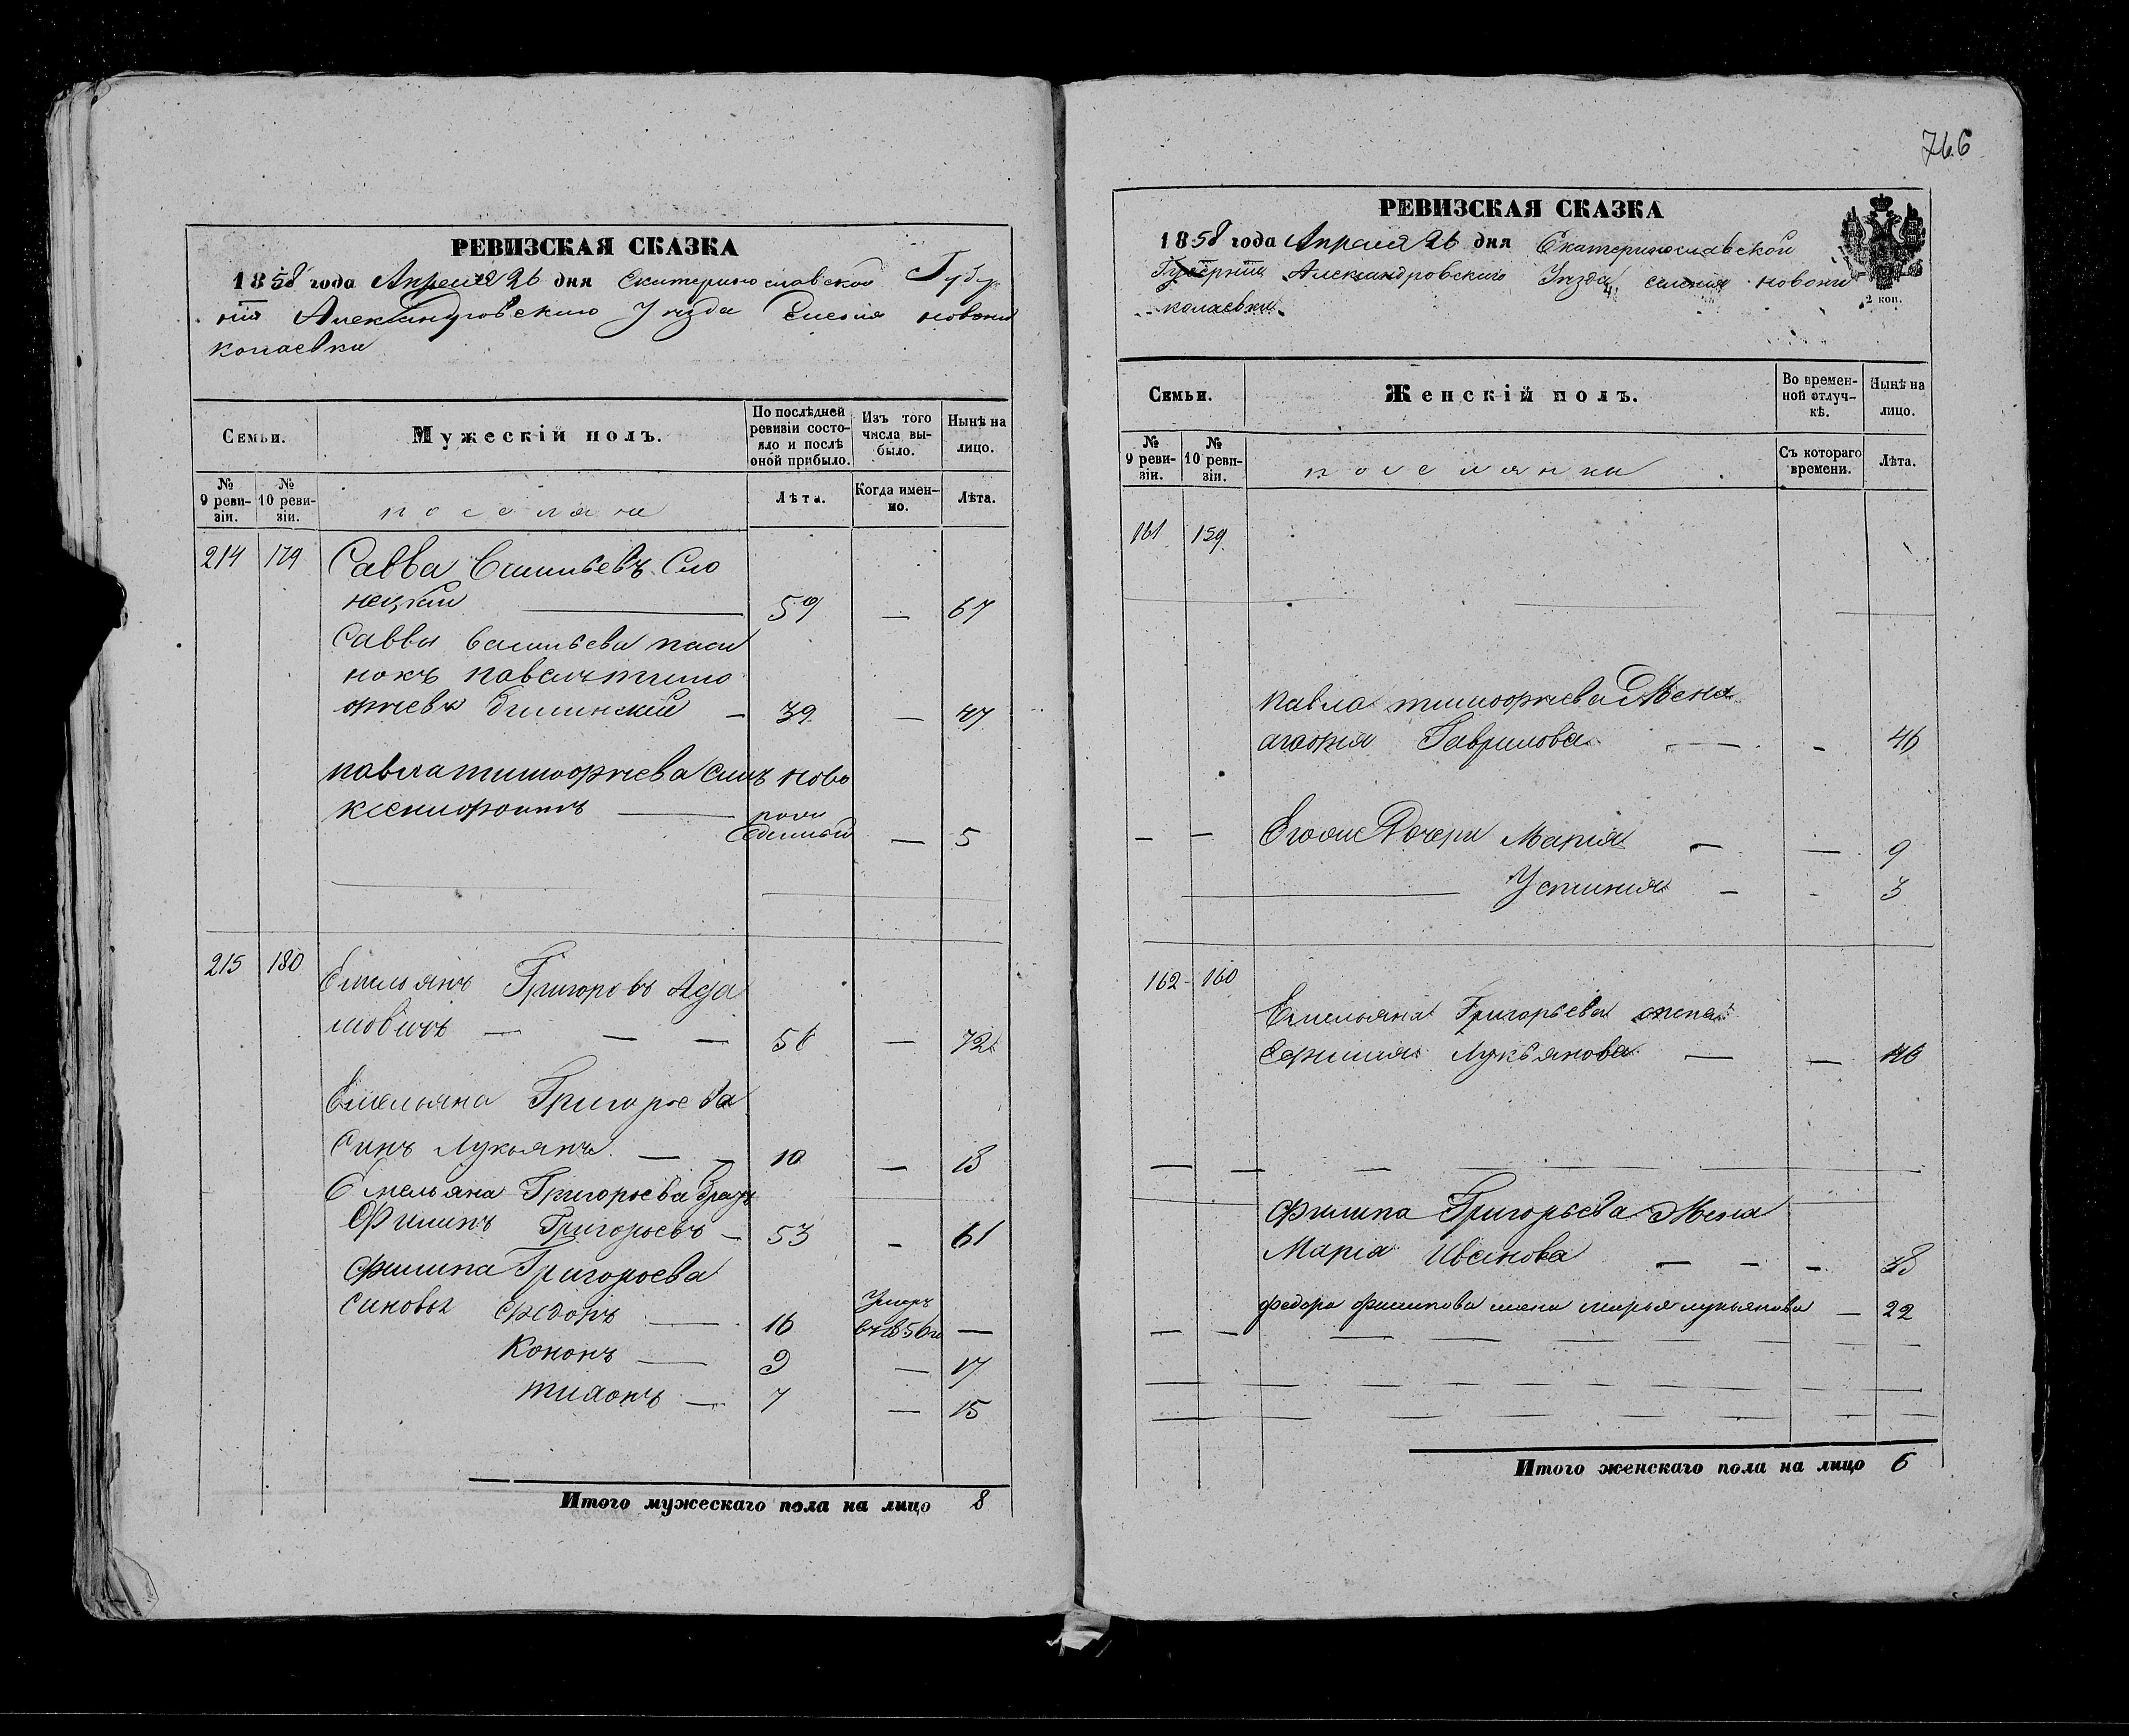 РЕВИЗСКАЯ СКАЗКА
1858 года Апреля 26 дня Екатеринославской Губер
нии Александровского Уезда Селения новони
колаевки
Семьи.
Мужескій полъ.
По послѣдней ревизіи состояло и послѣ оной прибыло.
Изъ того числа выбыло.
Нынѣ на лицо.
№ 9 ревизіи.
№ 10 ревизіи.
поселяне
Лѣта.
Когда именно.
Лѣта.
214 179 Савва Васильевъ Сло
нецкий 59 — 67
Саввы Васильева паси
нокъ павелъ тимо
фиевъ — 39 — 47
павла тимофиева синъ ново
ксенифонтъ — — 5
215 180 Емельянъ Григоревъ Ада
мовичъ — — — 56 — 72
Емельяна Григорьева
Синъ Лукьянъ — — 10 — 18
Емельяна Григорьева братъ
Филипъ Григорьевъ — 53 — 61
Филипа Григорьева
синовья — 16 Умеръ
въ 1856го —
Кононъ — 9 — 17
тихонъ — 7 — 15
Итого мужескаго пола на лицо 8
766
РЕВИЗСКАЯ СКАЗКА
1858 года Апреля 26 дня Екатеринославской
Губернии Александровскаго Уезда селения новони
колаевки
2 коп.
Семьи.
Женскій полъ.
Во временной отлучкѣ.
Нынѣ на лицо.
№ 9 ревизіи.
№ 10 ревизіи.
поселянки
Съ котораго времени.
Лѣта.
161 159
павла тимофиева Жена
агафия Гаврилова — - 46
— — Егоже Дочери Мария — — 9
Устиния — - 3
162 160
Емельяна Григорьева жена
Ефимия Лукьянова — — 46
Филипа Григорьева Жена
Мария Иванова — - -
федора филипова жена марья лукьянова — 22
Итого женскаго пола на лицо 6